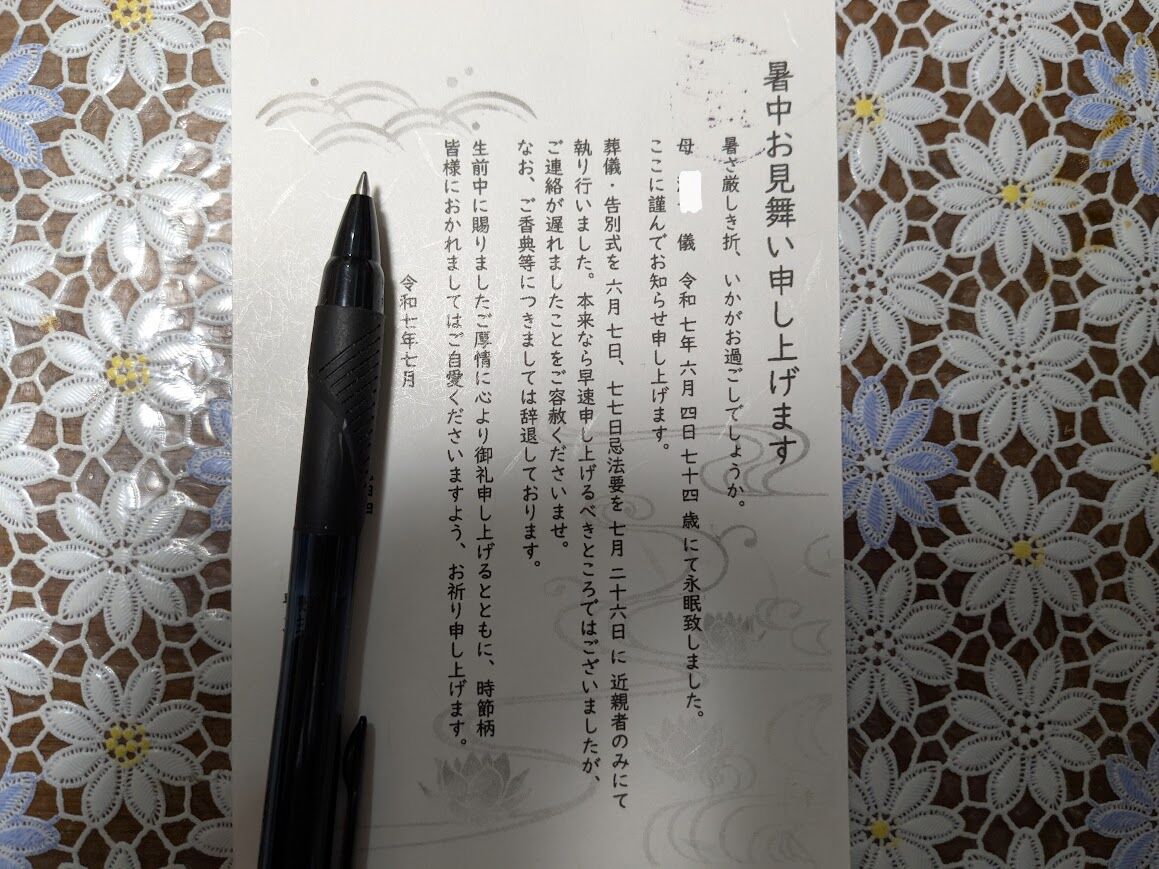 暑中お見舞い申し上げます
暑さ厳しき折、いかがお過ごしでしょうか。
母 儀 令和 七年 六月 四日 七十四 歳 にて永眠致しました。
ここに謹んでお知らせ申し上げます。
葬儀・告別式を 六月 七日、七七日忌法要を 七月 二十六日 に 近親者のみにて
執り行いました。本来なら早速申し上げるべきところではございましたが、
ご連絡が遅れましたことをご容赦くださいませ。
なお、ご香典等につきましては辞退しております。
生前中に賜りましたご厚情に心より御礼申し上げるとともに、時節柄
皆様におかれましてはご自愛くださいますよう、お祈り申し上げます。
令和七年七月